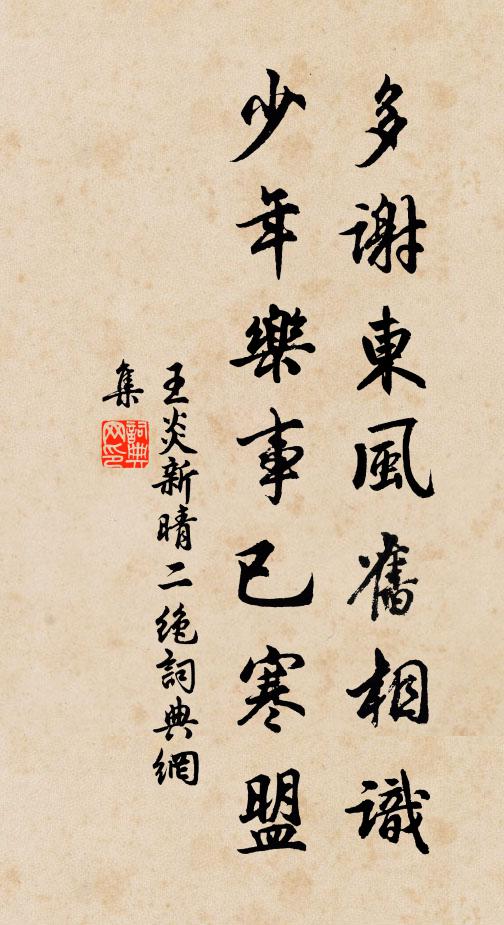 多謝東風舊相識
少年樂事已寒盟
王炎新晴二绝詞典網
集
詞典
网印